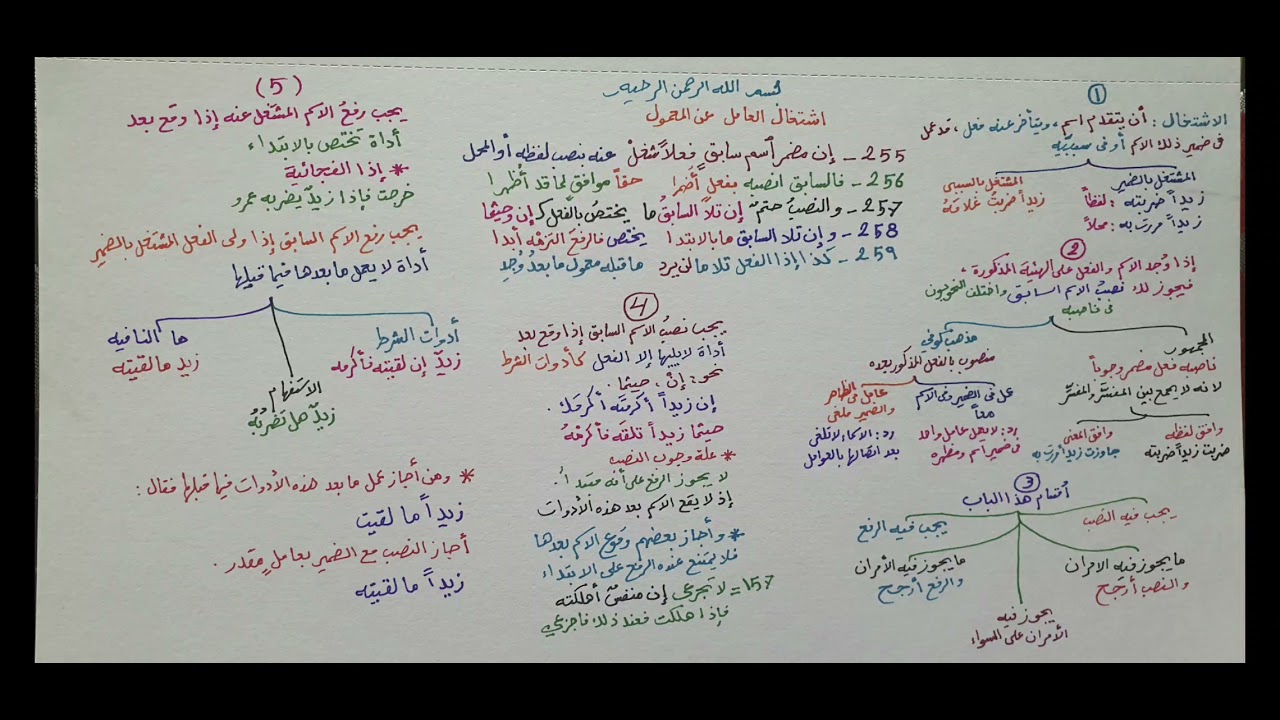 بسم الله الرحمن الرحيم
اشتغال العامل عن المعمول
255 - إن مضمر اسم سابق فعلاً شغل عنه بنصب لفظه أو المحل
256 - فالسابق انصبه بفعل أضمرا حتماً موافق لما قد أظهرا
257 - والنصب حتم إن تلا السابق ما يختص بالفعل كإن وحيثما
258 - وإن تلا السابق ما بالابتدا يختص فالرفع التزمه أبدا
259 - كذا إذا الفعل تلا ما لن يرد ما قبله معمول ما بعد وجد
1
الاشتغال : أن يتقدم اسم ، ويتأخر عنه فعل ، قد عمل
في ضمير ذلك الاسم أو في سببيه
المشتغل بالضمير
زيداً ضربته : لفظاً
زيداً مررت به : محلاً
المشتغل بالسببي
زيداً ضربت غلامه
2
إذا وُجد الاسم والفعل على الهيئة المذكورة ،
فيجوز لك نصب الاسم السابق واختلف النحويون
في ناصبه
الجمهور
ناصبه فعل مضمر وجوباً
لانه لا يجمع بين المفسَّر والمفسِّر
وافق لفظه
ضربت زيداً ضربته
وافق المعنى
جاوزت زيداً مررت به
مذهب كوفي
منصوب بالفعل المذكور بعده
عمل في الضمير وفي الاسم
معاً
رد : لا يعمل عامل واحد
في ضمير اسم ومظهره
عامل في الظاهر
والضمير ملغى
رد : الاسماء لا تلغى
بعد اتصالها بالعوامل
3
أقسام هذا الباب
يجب فيه النصب
ما يجوز فيه الامران
والنصب أرجح
يجوز فيه
الأمران على السواء
ما يجوز فيه الأمران
والرفع أرجح
يجب فيه الرفع
4
يجب نصبُ الاسم السابق إذا وقع بعد
أداة لا يليها إلا الفعل كأدوات الشرط
نحو : إنْ ، حيثما .
إن زيداً أكرمته أكرمك .
حيثما زيداً تلقه فأكرمْهُ
* علة وجوب النصب
لا يجوز الرفع على أنه مبتدأ .
إذ لا يقع الاسم بعد هذه الأدوات
* وأجاز بعضهم وقوع الاسم بعدها
فلا يمتنع عنده الرفع على الابتداء
157 = لا تجزعي إن منفسٌ أهلكته
فإذا هلكت فعند ذلك فاجزعي
(5)
يجب رفعُ الاسم المشتغل عنه إذا وقع بعد
أداة تختص بالابتداء
* إذا الفجائية
خرجت فإذا زيدٌ يضربه عمرو
يجب رفع الاسم السابق إذا ولي الفعل المشتغل بالضمير
أداة لا يعمل ما بعدها فيما قبلها
أدوات الشرط
زيدٌ إن لقيته فأكرمه
الاستفهام
زيدٌ هل تضربُهُ
ما النافيه
زيد ما لقيته
* ومن أجاز عمل ما بعد هذه الأدوات فيما قبلها فقال :
زيداً ما لقيت
أجاز النصب مع الضمير بعاملٍ مقدر .
زيداً ما لقيته